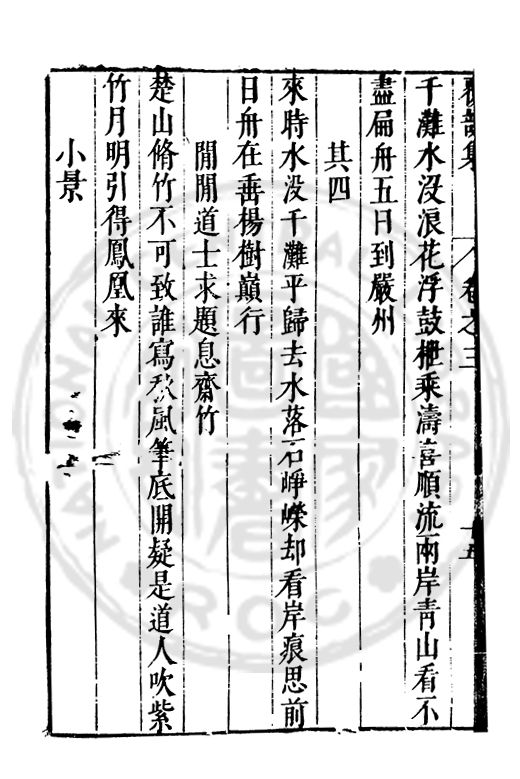 覆瓿集 卷之三 十五
千灘水沒浪花浮鼓枻乘濤喜順流兩岸青山看不
盡扁舟五日到嚴州
其四
來時水沒千灘平歸去水落石崢嶸却看岸痕思前
日舟在垂楊樹巔行
閒閒道士求題息齋竹
楚山脩竹不可致誰寫秋風筆底開疑是道人吹紫
竹月明引得鳳凰來
小景